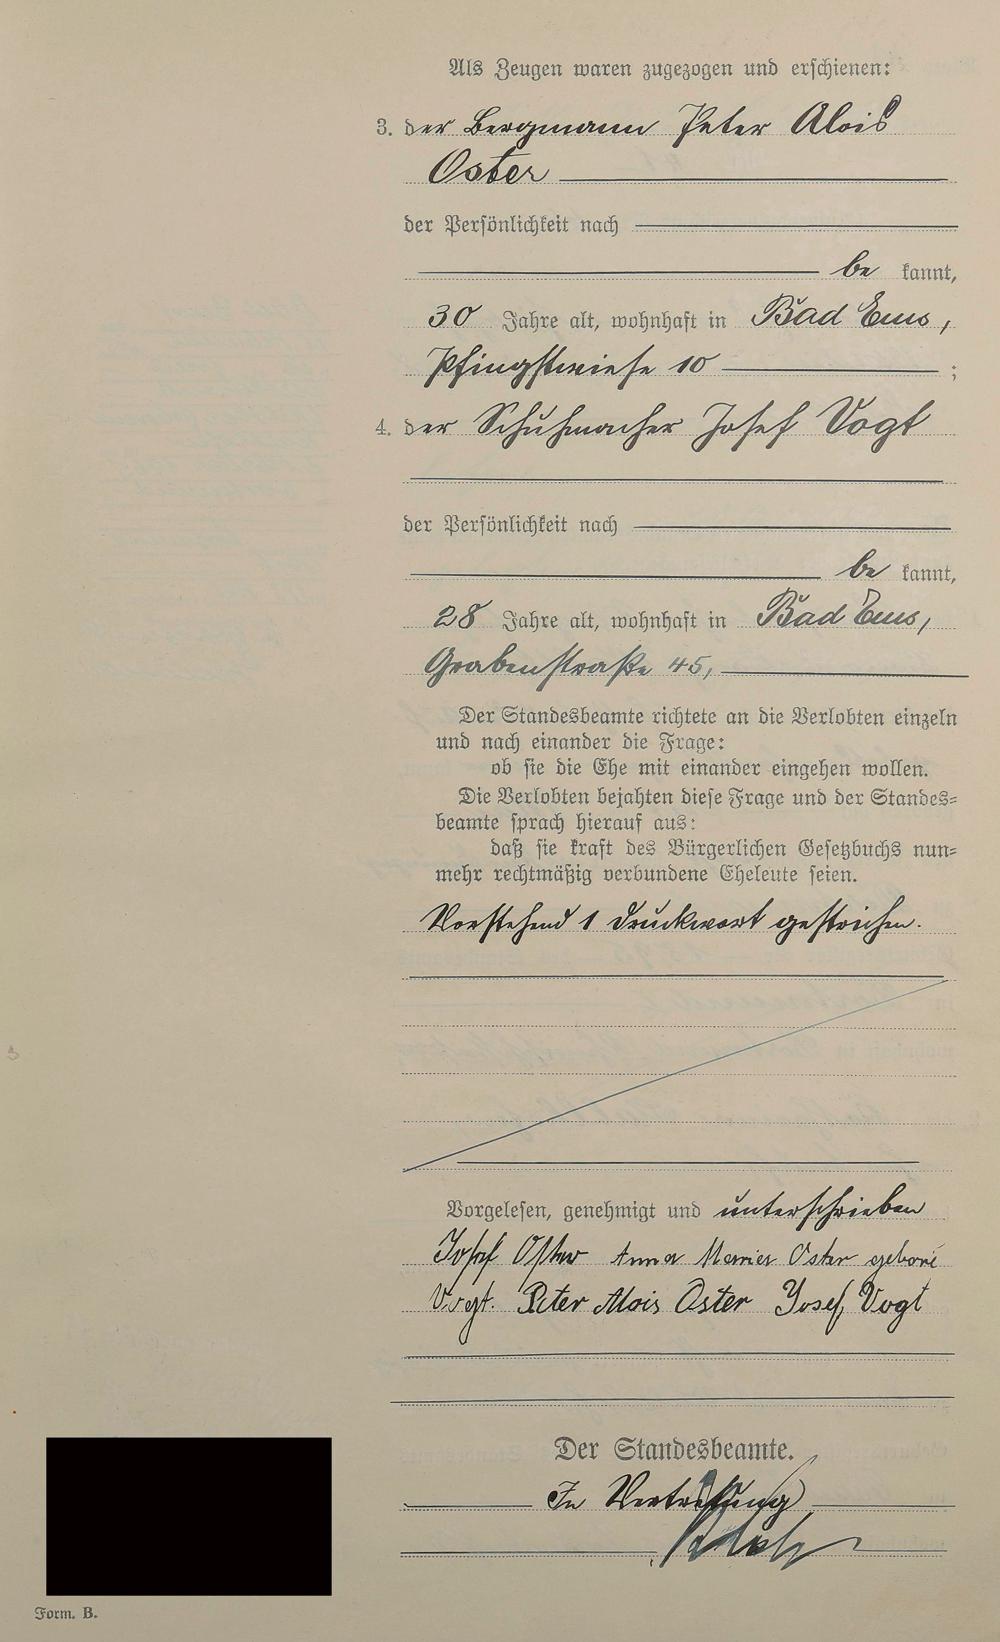 Als Zeugen waren zugezogen und erschienen:
3. der Bergmann Peter Alois
Oster
der Persönlichkeit nach
be kannt,
30 Jahre alt, wohnhaft in Bad Ems,
Pfingstwiese 10 ;
4. der Schuhmacher Josef Vogt
der Persönlichkeit nach
be kannt,
28 Jahre alt, wohnhaft in Bad Ems,
Grabenstraße 45,
Der Standesbeamte richtete an die Verlobten einzeln
und nach einander die Frage:
ob sie die Ehe mit einander eingehen wollen.
Die Verlobten bejahten diese Frage und der Standes=
beamte sprach hierauf aus:
daß sie kraft des Bürgerlichen Gesetzbuchs nun=
mehr rechtmäßig verbundene Eheleute seien.
Vorstehend 1 Druckwort gestrichen.
Vorgelesen, genehmigt und unterschrieben
Josef Oster Anna Maria Oster geborne
Vogt. Peter Alois Oster Josef Vogt
Der Standesbeamte.
In Vertretung
Form. B.